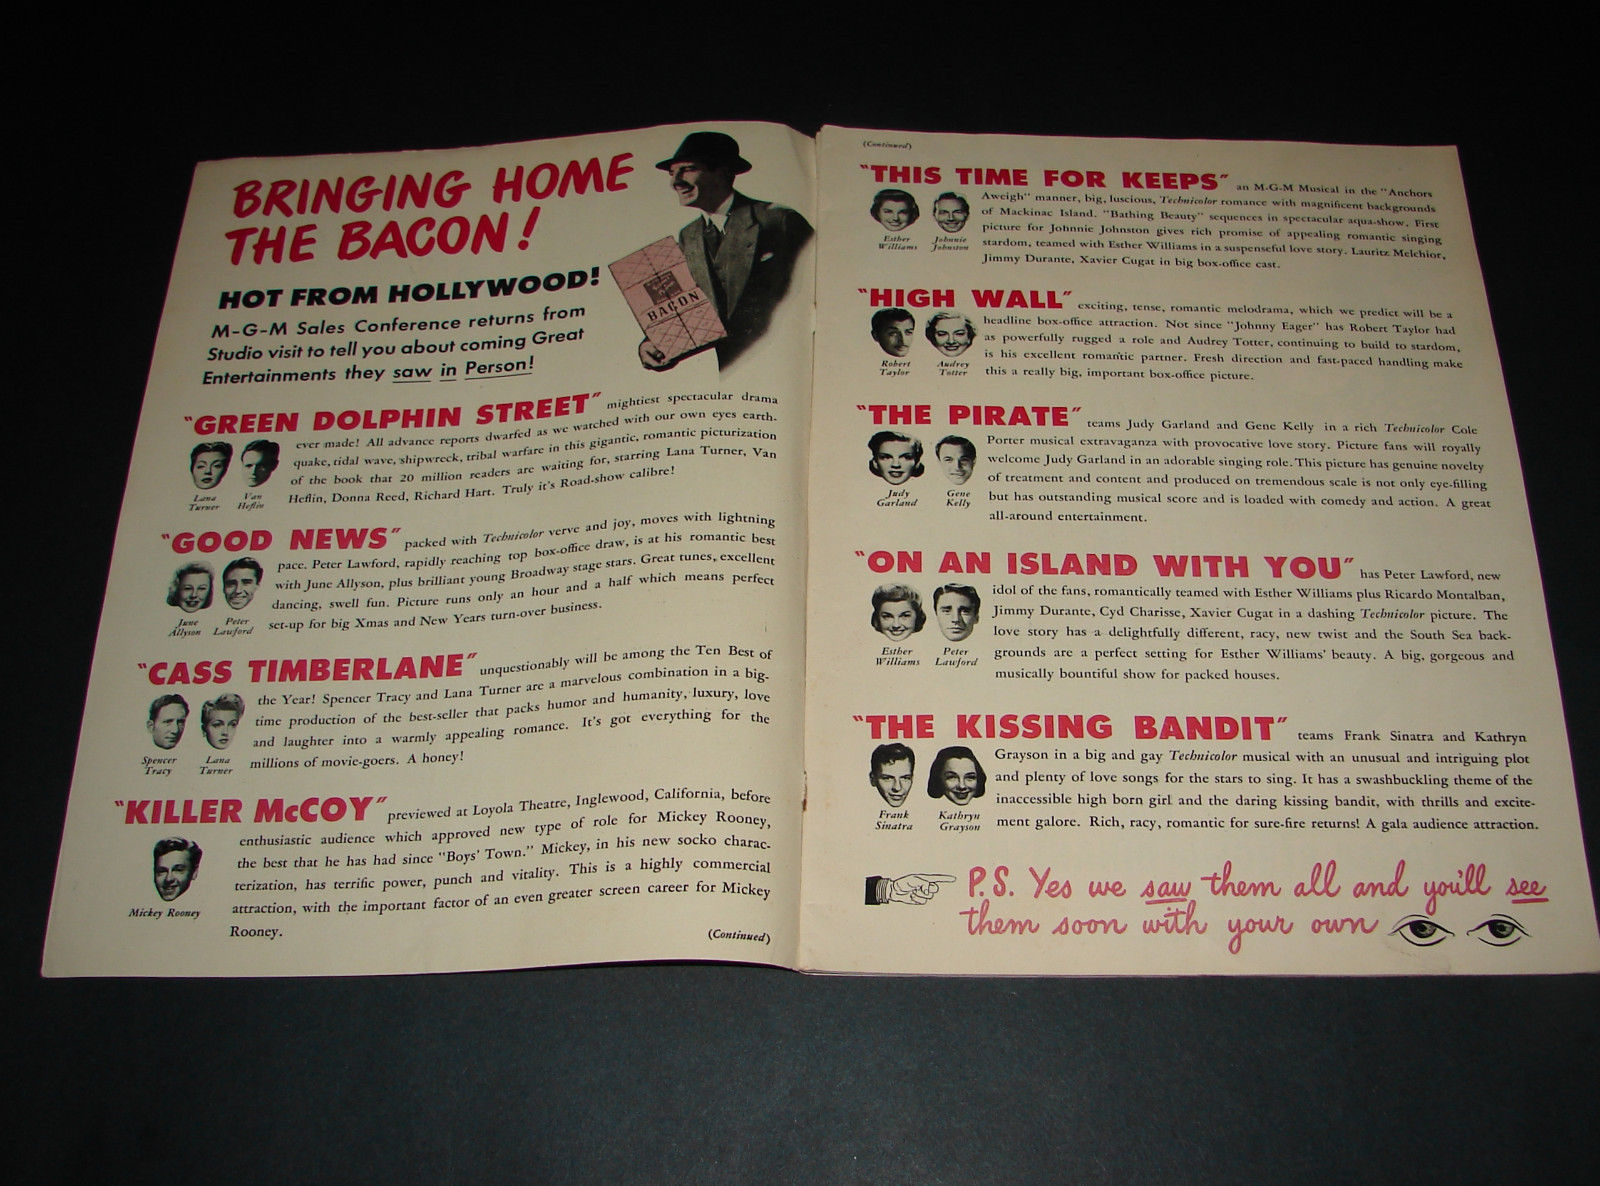 BRINGING HOME
THE BACON!
HOT FROM HOLLYWOOD!
M-G-M Sales Conference returns from
Studio visit to tell you about coming Great
Entertainments they saw in Person!
BACON
"GREEN DOLPHIN STREET" mightiest spectacular drama
ever made! All advance reports dwarfed as we watched with our own eyes earth-
quake, tidal wave, shipwreck, tribal warfare in this gigantic, romantic picturization
of the book that 20 million readers are waiting for, starring Lana Turner, Van
Heflin, Donna Reed, Richard Hart. Truly it's Road-show calibre!
Lana
Turner
Van
Heflin
"GOOD NEWS" packed with Technicolor verve and joy, moves with lightning
pace. Peter Lawford, rapidly reaching top box-office draw, is at his romantic best
with June Allyson, plus brilliant young Broadway stage stars. Great tunes, excellent
dancing, swell fun. Picture runs only an hour and a half which means perfect
set-up for big Xmas and New Years turn-over business.
June
Allyson
Peter
Lawford
"CASS TIMBERLANE" unquestionably will be among the Ten Best of
the Year! Spencer Tracy and Lana Turner are a marvelous combination in a big-
time production of the best-seller that packs humor and humanity, luxury, love
and laughter into a warmly appealing romance. It's got everything for the
millions of movie-goers. A honey!
Spencer
Tracy
Lana
Turner
"KILLER McCOY" previewed at Loyola Theatre, Inglewood, California, before
enthusiastic audience which approved new type of role for Mickey Rooney,
the best that he has had since "Boys' Town." Mickey, in his new socko charac-
terization, has terrific power, punch and vitality. This is a highly commercial
attraction, with the important factor of an even greater screen career for Mickey
Rooney.
Mickey Rooney
(Continued)
(Continued)
"THIS TIME FOR KEEPS" an M-G-M Musical in the "Anchors
Aweigh" manner, big, luscious, Technicolor romance with magnificent backgrounds
of Mackinac Island. "Bathing Beauty" sequences in spectacular aqua-show. First
picture for Johnnie Johnston gives rich promise of appealing romantic singing
stardom, teamed with Esther Williams in a suspenseful love story. Lauritz Melchior,
Jimmy Durante, Xavier Cugat in big box-office cast.
Esther
Williams
Johnnie
Johnston
"HIGH WALL" exciting, tense, romantic melodrama, which we predict will be a
headline box-office attraction. Not since "Johnny Eager" has Robert Taylor had
as powerfully rugged a role and Audrey Totter, continuing to build to stardom,
is his excellent romantic partner. Fresh direction and fast-paced handling make
this a really big, important box-office picture.
Robert
Taylor
Audrey
Totter
"THE PIRATE" teams Judy Garland and Gene Kelly in a rich Technicolor Cole
Porter musical extravaganza with provocative love story. Picture fans will royally
welcome Judy Garland in an adorable singing role. This picture has genuine novelty
of treatment and content and produced on tremendous scale is not only eye-filling
but has outstanding musical score and is loaded with comedy and action. A great
all-around entertainment.
Judy
Garland
Gene
Kelly
"ON AN ISLAND WITH YOU" has Peter Lawford, new
idol of the fans, romantically teamed with Esther Williams plus Ricardo Montalban,
Jimmy Durante, Cyd Charisse, Xavier Cugat in a dashing Technicolor picture. The
love story has a delightfully different, racy, new twist and the South Sea back-
grounds are a perfect setting for Esther Williams' beauty. A big, gorgeous and
musically bountiful show for packed houses.
Esther
Williams
Peter
Lawford
"THE KISSING BANDIT" teams Frank Sinatra and Kathryn
Grayson in a big and gay Technicolor musical with an unusual and intriguing plot
and plenty of love songs for the stars to sing. It has a swashbuckling theme of the
inaccessible high born girl and the daring kissing bandit, with thrills and excite-
ment galore. Rich, racy, romantic for sure-fire returns! A gala audience attraction.
Frank
Sinatra
Kathryn
Grayson
P.S. Yes we saw them all and you'll see
them soon with your own